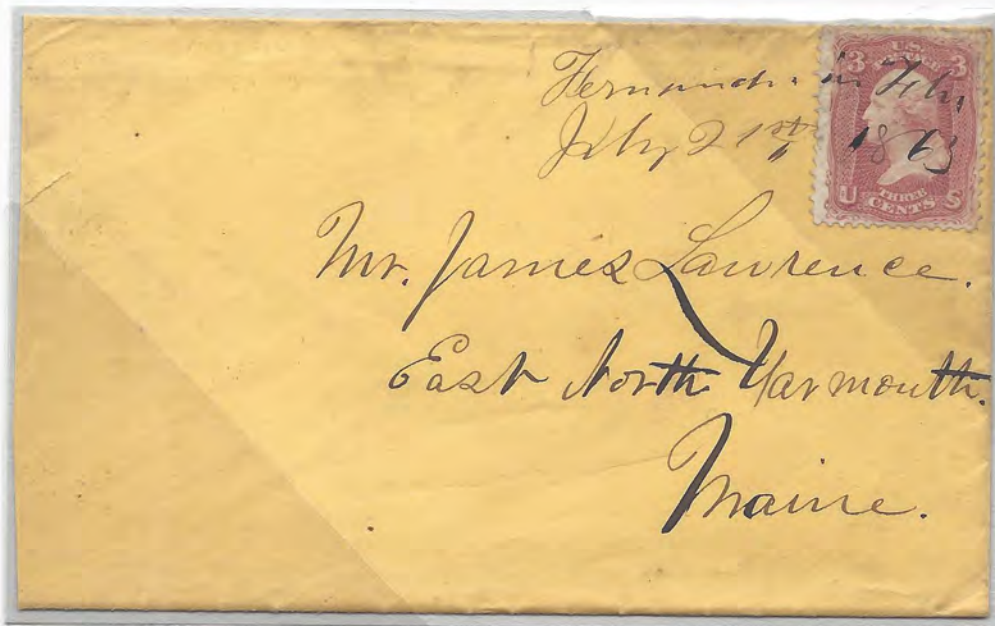 Fernandina Fla
July 21st 1863
U.S. POSTAGE
3 3
U THREE CENTS S
Mr. James Lawrence.
East North Yarmouth.
Maine.